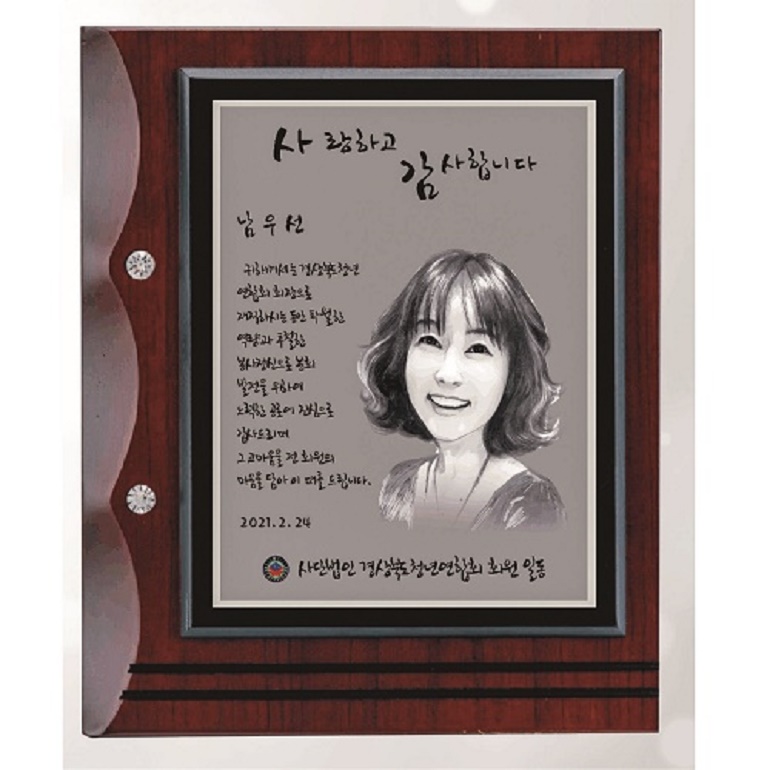 사랑하고
감사합니다
남우선
귀하께서는 경상북도청년
연합회 회장으로
재직하시는 동안 탁월한
역량과 투철한
봉사정신으로 본회
발전을 위하여
노력한 공로에 진심으로
감사드리며
그 고마움을 전 회원의
마음을 담아 이 패를 드립니다.
2021.2.24
사단법인 경상북도청년연합회 회원 일동